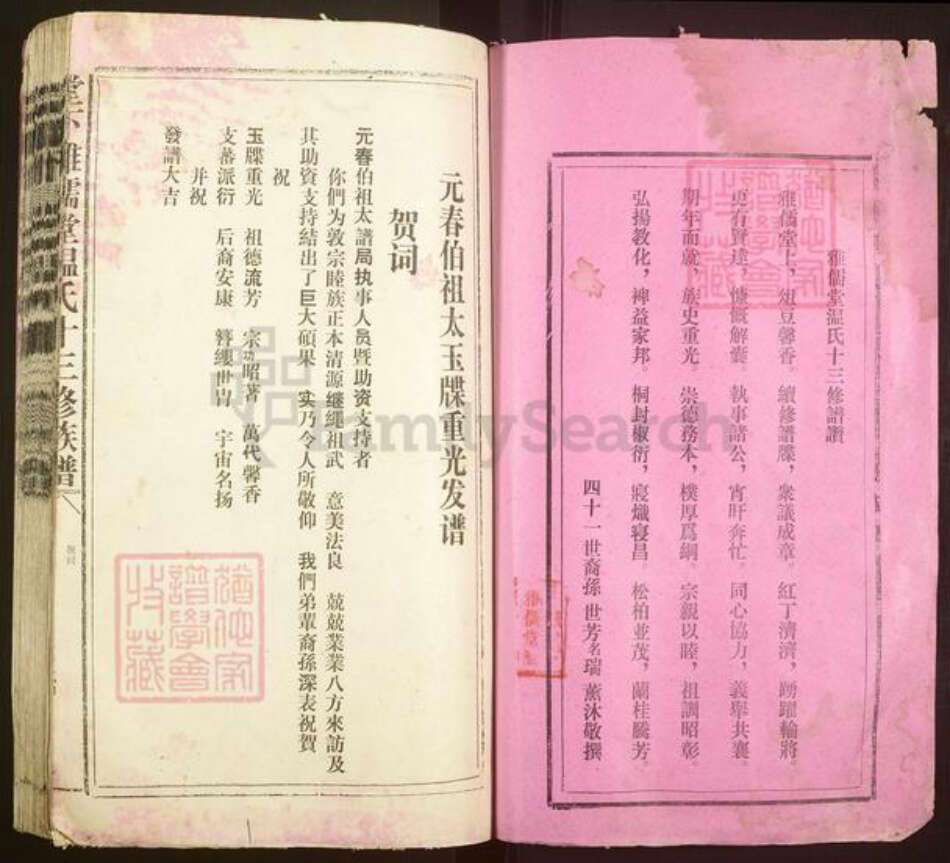 雅儒堂温氏十三修譜讚
雅儒堂上，俎豆馨香。續修譜牒，衆議成章。紅丁濟濟，踴躍輸將。
更有賢達，慷慨解囊。執事諸公，宵旰奔忙。同心協力，義舉共襄。
期年而就，族史重光。崇德務本，樸厚爲綱。宗親以睦，祖訓昭彰。
弘揚教化，裨益家邦。桐封椒衍，寢熾寝昌。松柏並茂，蘭桂騰芳。
四十一世裔孫 世芳名瑞 薰沐敬撰
元春伯祖太玉牒重光发谱
贺词
元春伯祖太譜局执事人员暨助资支持者
你們为敦宗睦族正本清源继繩祖武 意美法良 兢兢業業八方來訪及
其助资支持結出了巨大碩果 实乃令人所敬仰 我們弟輩裔孫深表祝賀
祝
玉牒重光 祖德流芳 宗功昭著 萬代馨香
支蕃派衍 后裔安康 簪纓世冑 宇宙名扬
并祝
發譜大吉
堂下雅儒堂温氏十三修族譜
猶他家譜學會收藏
猶他家譜學會收藏
FamilySearch